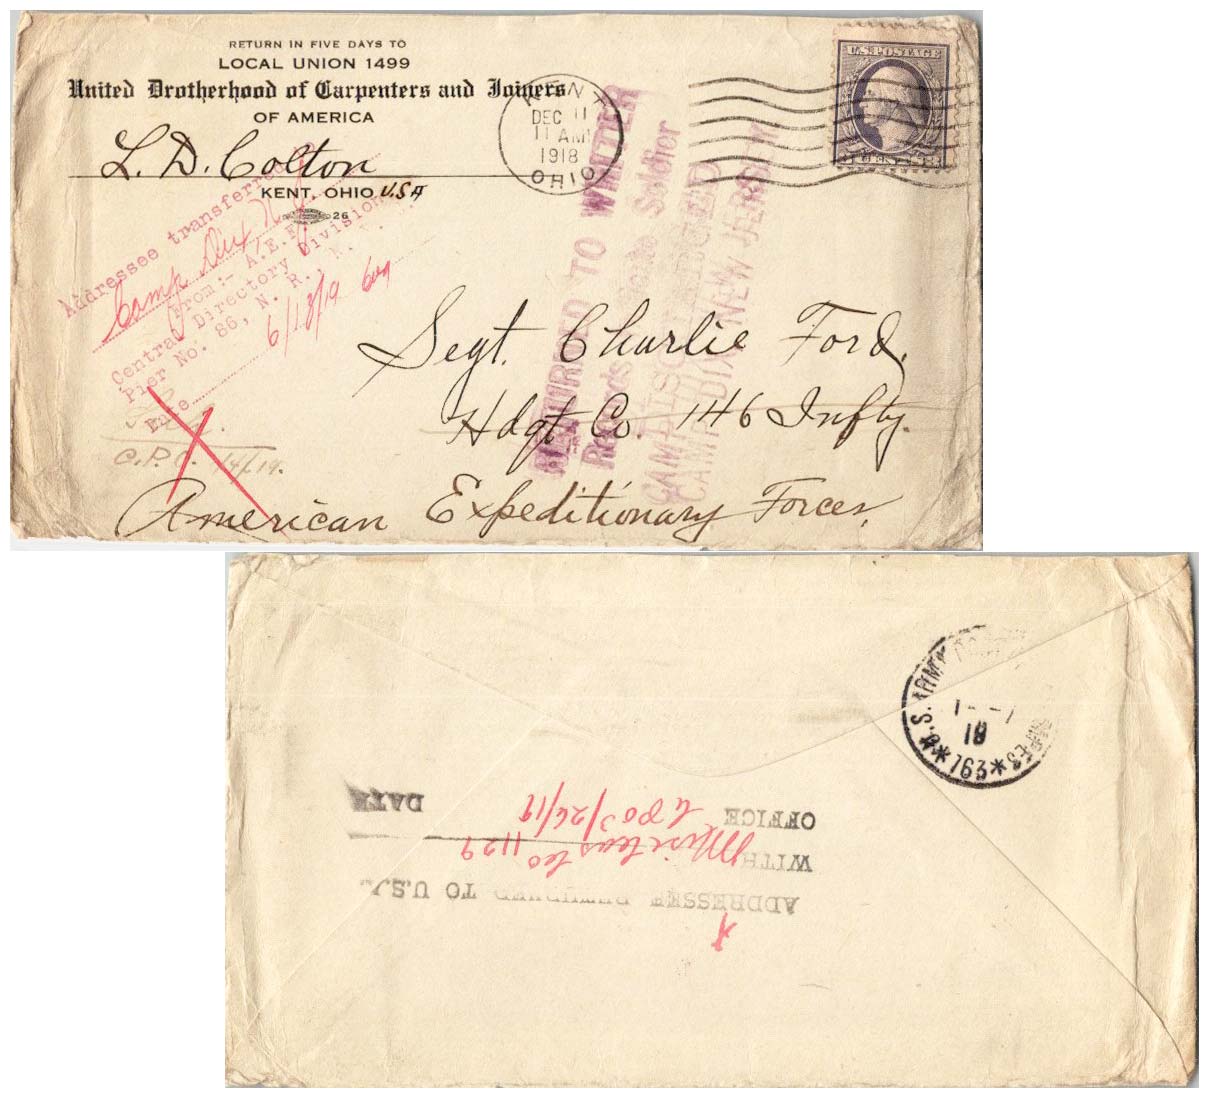 RETURN IN FIVE DAYS TO
LOCAL UNION 1499
United Brotherhood of Carpenters and Joiners
OF AMERICA
L. D. Colton
KENT, OHIO USA
26
KENT
DEC 11
11 AM
1918
OHIO
U.S. POSTAGE
3 CENTS 3
Addressee transferred
Camp Dix N.J.
From:- A.E.F.
Central Directory Division
Pier No. 86, N. R., N.
Date 6/18/19
C.P.O.
RETURNED TO WRITER
Records Soldier
CAMP DISCHARGED
CAMP DIX, NEW JERSEY
Segt. Charlie Ford.
Hdqt Co. 146 Infty.
American Expeditionary Forces,
U.S. ARMY
1 - - 1
19
*763*
ADDRESSEE RETURNED TO U.S.
WITH
OFFICE
DATE
3/26/19